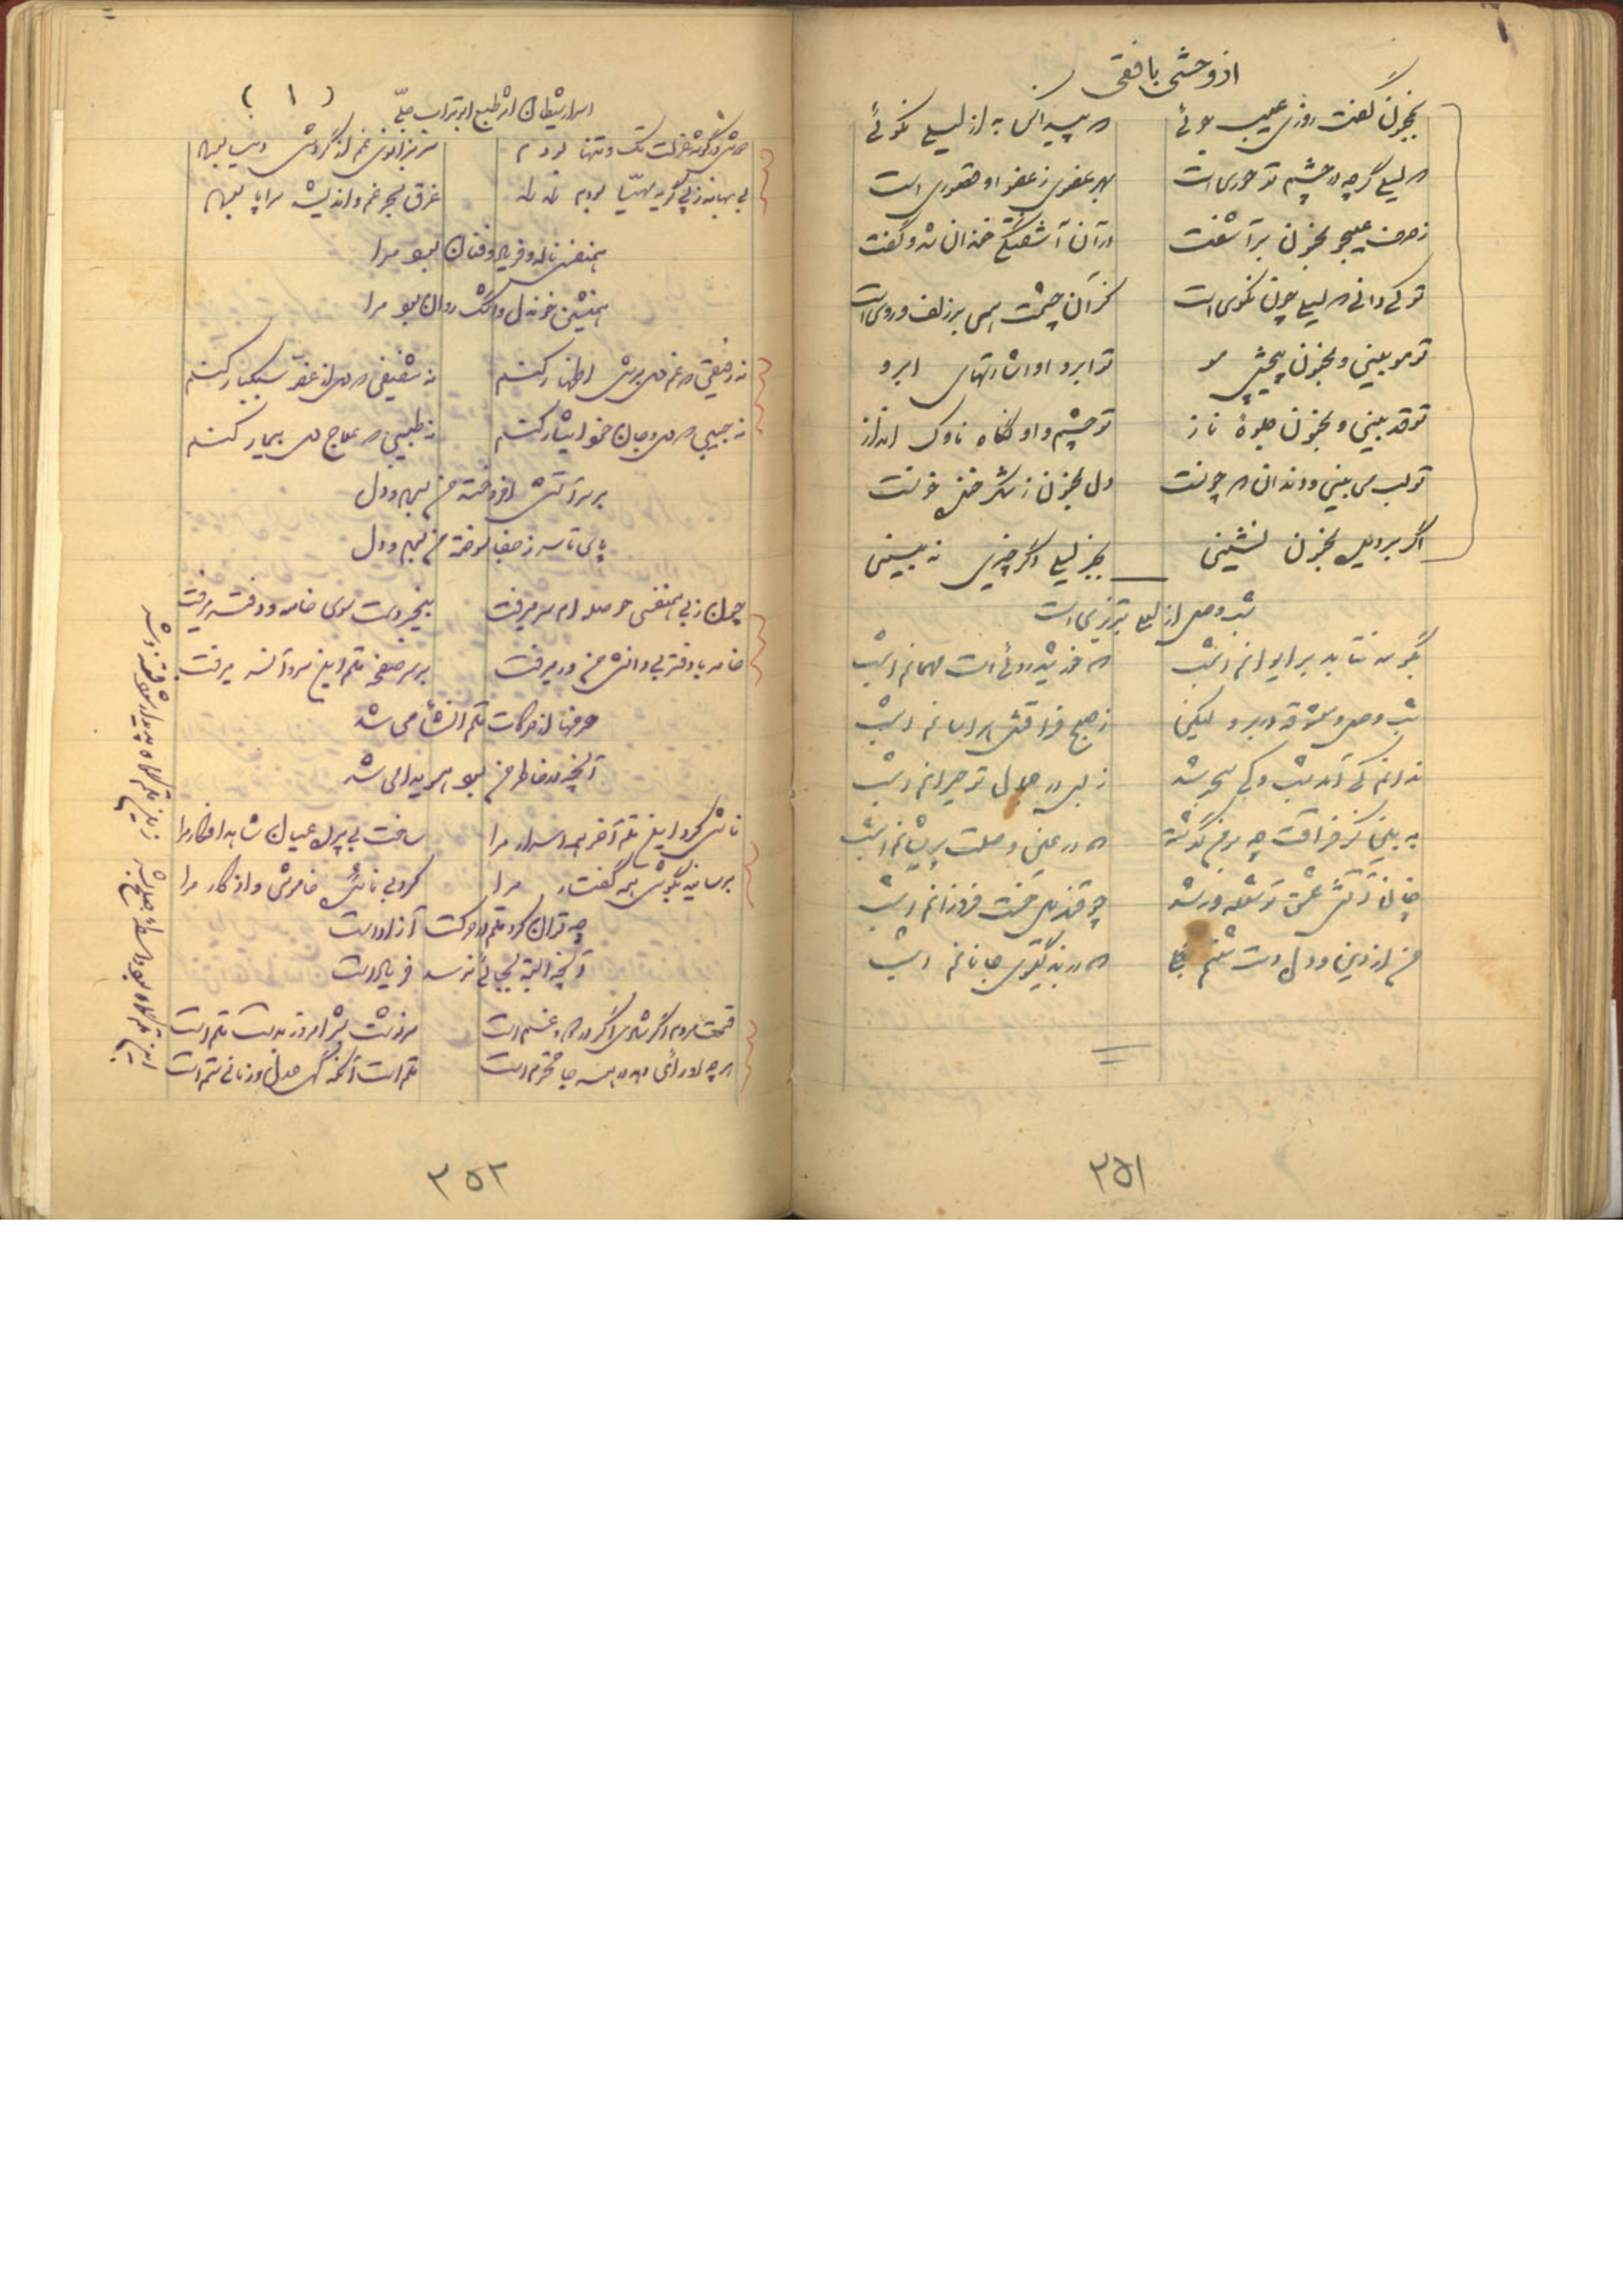 از وحشی بافقی
بمجنون گفت روزی عیب جوئی
که پیدا کن به از لیلی نکوئی
که لیلی گرچه در چشم تو حوری است
بهر عضوی ز عضو او قصوری است
ز حرف عیبجو مجنون برآشفت
در آن آشفتگی خندان شد و گفت
تو کی دانی که لیلی چون نکوی است
کز آن چشمت همی بر زلف و روی است
تو مو بینی و مجنون پیچش مو
تو ابرو او اشارتهای ابرو
تو قد بینی و مجنون جلوهٔ ناز
تو چشم و او نگاه ناوک انداز
تو لب می بینی و دندان که چونست
دل مجنون ز شکر خنده خونست
اگر بر دیده مجنون نشینی
بجز لیلی دگر چیزی نه بینی
شب وصل از لیلی تبریزی است
بگو مه نتابد بر ایوانم امشب
که خورشید روئی است مهمانم امشب
شب وصل و معشوقه در بر و لیکن
ز صبح فراقش هراسانم امشب
ندانم کی آمد شب و کی سحر شد
ز بس در جمال تو حیرانم امشب
به بین کز فراقت چه بر من گذشته
که در عین وصلت پریشانم امشب
چنان آتش عشق تو شعله ور شد
چو قندیل رخت فروزانم امشب
من از دین و دل دست شستم
که در بند گیسوی جانانم امشب
۳۵۱
اسرار شیطان اثر طبع ابوتراب جلی
(۱)
دوش در گوشه عزلت تک و تنها بودم
سر بزانوی غم از گردش دنیا بودم
بی بهانه ز پی گریه مهیا بودم
غرق بحر غم و اندیشه سراپا بودم
همنفس ناله و فریاد و فغان بود مرا
همنشین خون دل و اشک روان بود مرا
نه رفیقی که غم دل برش اظهار کنم
نه شفیقی که دل از غصه سبکبار کنم
نه حبیبی که دل و جان خود ایثار کنم
نه طبیبی که علاج دل بیمار کنم
بر سر آتش افروخته من بودم و دل
پای تا سر ز جفا سوخته من بودم و دل
چون ز بی همنفسی حوصله ام سر میرفت
بیخبر دست سوی خامه و دفتر میرفت
خامه با دفتر بی دانش من ور میرفت
بر سر صفحه قلم این سر و آنسر میرفت
حرفها از حرکات قلم انشا می شد
آنچه در خاطر من بود هویدا می شد
فاش کرد این قلم آخر همه اسرار مرا
ساخت بی پرده عیان شاهد افکار مرا
برساند بگوش همه گفتار مرا
کرد بی تابش خاموش و اذکار مرا
چه توان کرد قلم در حرکت آزاد است
آنچه البته بجائی نرسد فریاد است
قسمت مردم اگر شادی اگر درد و غم است
سرنوشت بشر امروز بدست قلم است
هر چه او رأی دهد در همه جا محترم است
قلم است آنکه گهی عدل و زمانی ستم است
۳۵۲